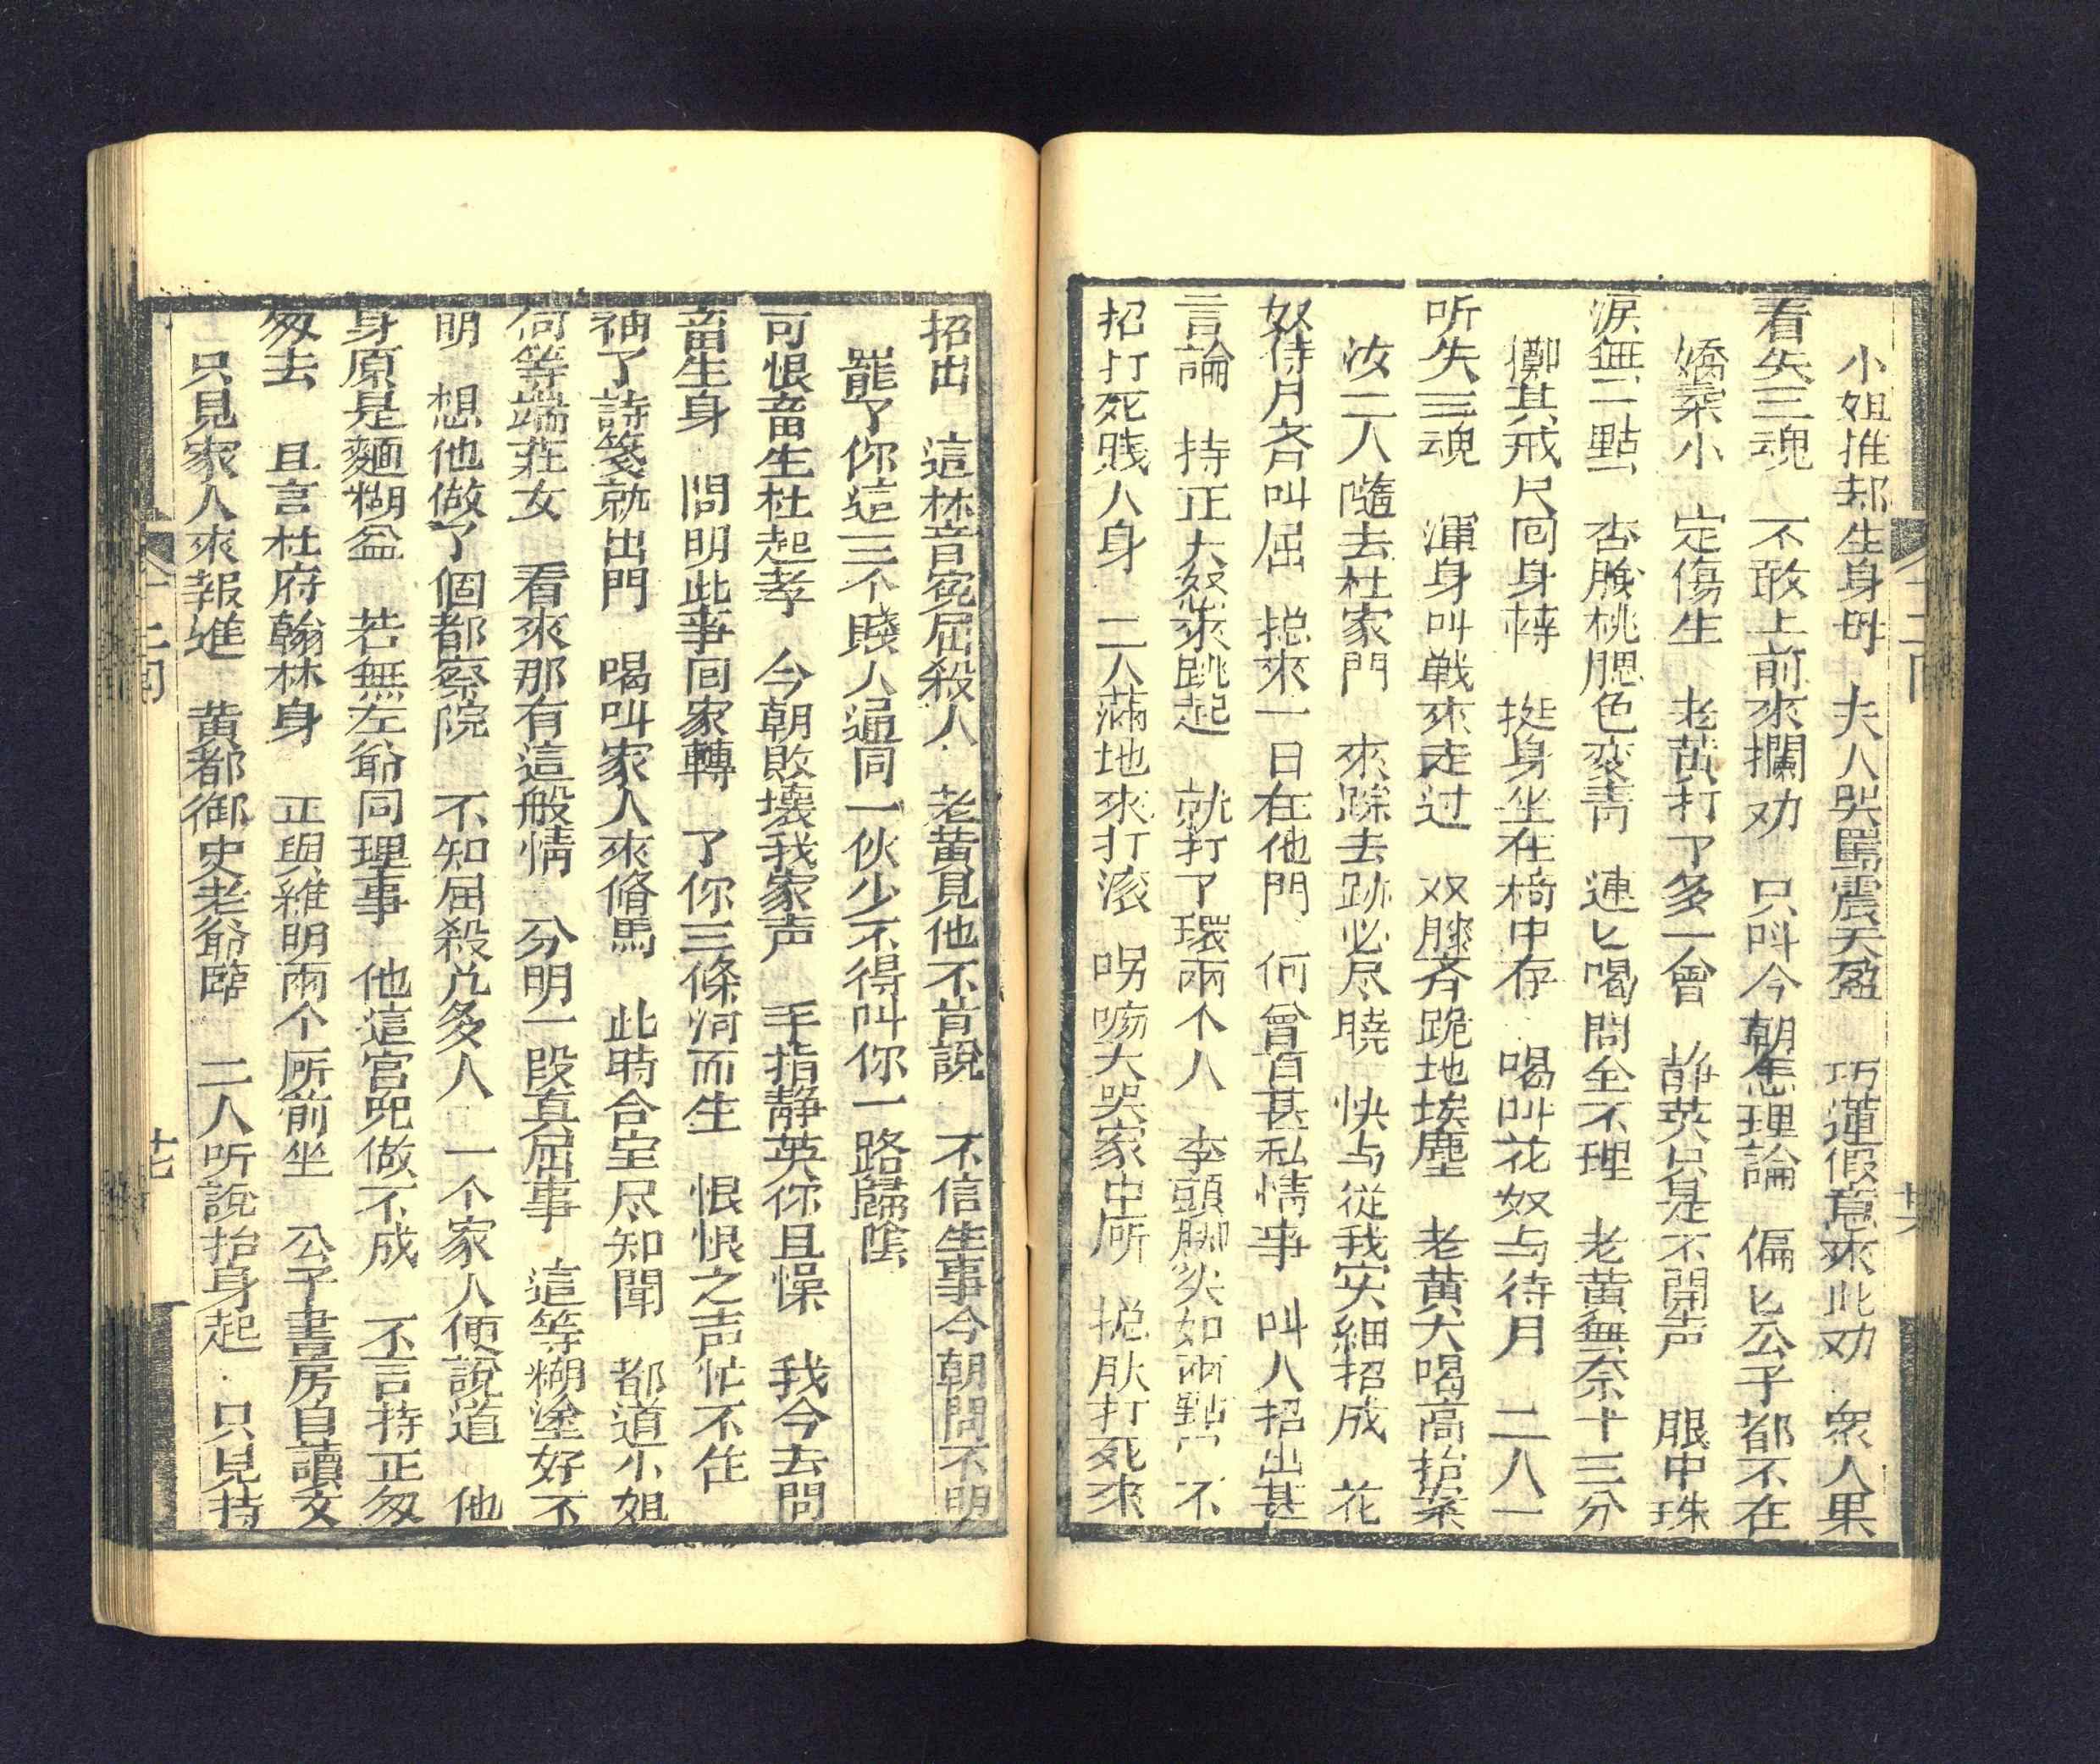 小姐推却生身母　夫人哭罵震天盈　巧蓮假意來此劝　衆人果
看失三魂　不敢上前來攔劝　只呌今朝怎理論　偏匕公子都不在
嬌棄小　定傷生　老黄打了多一會　静英只是不開声　眼中珠
淚無二點　杏臉桃腮色变青　連匕喝問全不理　老黄無奈十三分
擲其戒尺囘身轉　挺身坐在椅中存　喝叫花奴与待月　二人一
听失三魂　渾身叫戦來走过　双膝斉跪地埃塵　老黄大喝高抬案
汝二人隨去杜家門　來踪去跡必尽曉　快与從我实細招成　花
奴待月斉叫屈　搃來一日在他門　何曾有甚私情事　叫人招出甚
言論　持正大怒來跳起　就打了環兩个人　李頭脚尖如雨點　不
招打死賤人身　二人滿地來打滚　呺啕大哭家中所　搃肽打死來
招出　這林音寃屈殺人　老黄見他不肯說　不信生事今朝問不明
罷了你這三个賤人通同一伙少不得叫你一路歸陰
可恨畜生杜起孝　今朝敗壞我家声　手指静英你且懆　我今去問
畜生身　問明此事囘家轉　了你三條河而生　恨恨之声忙不住
袖了詩箋就出門　喝叫家人來偹馬　此時合室尽知聞　都道小姐
何等端莊女　看來那有這般情　分明一段真屈事　這等糊塗好不
明　想他做了個都察院　不知屈殺几多人　一个家人便說道　他
身原是麵糊盆　若無左爺同理事　他這官兒做不成　不言持正匆
匆去　且言杜府翰林身　正與維明兩个所前坐　公子書房自讀文
只見家人來報進　黄都御史老爺臨　二人听說抬身起　只見持
十二囘
廿六
十二囘
廿七